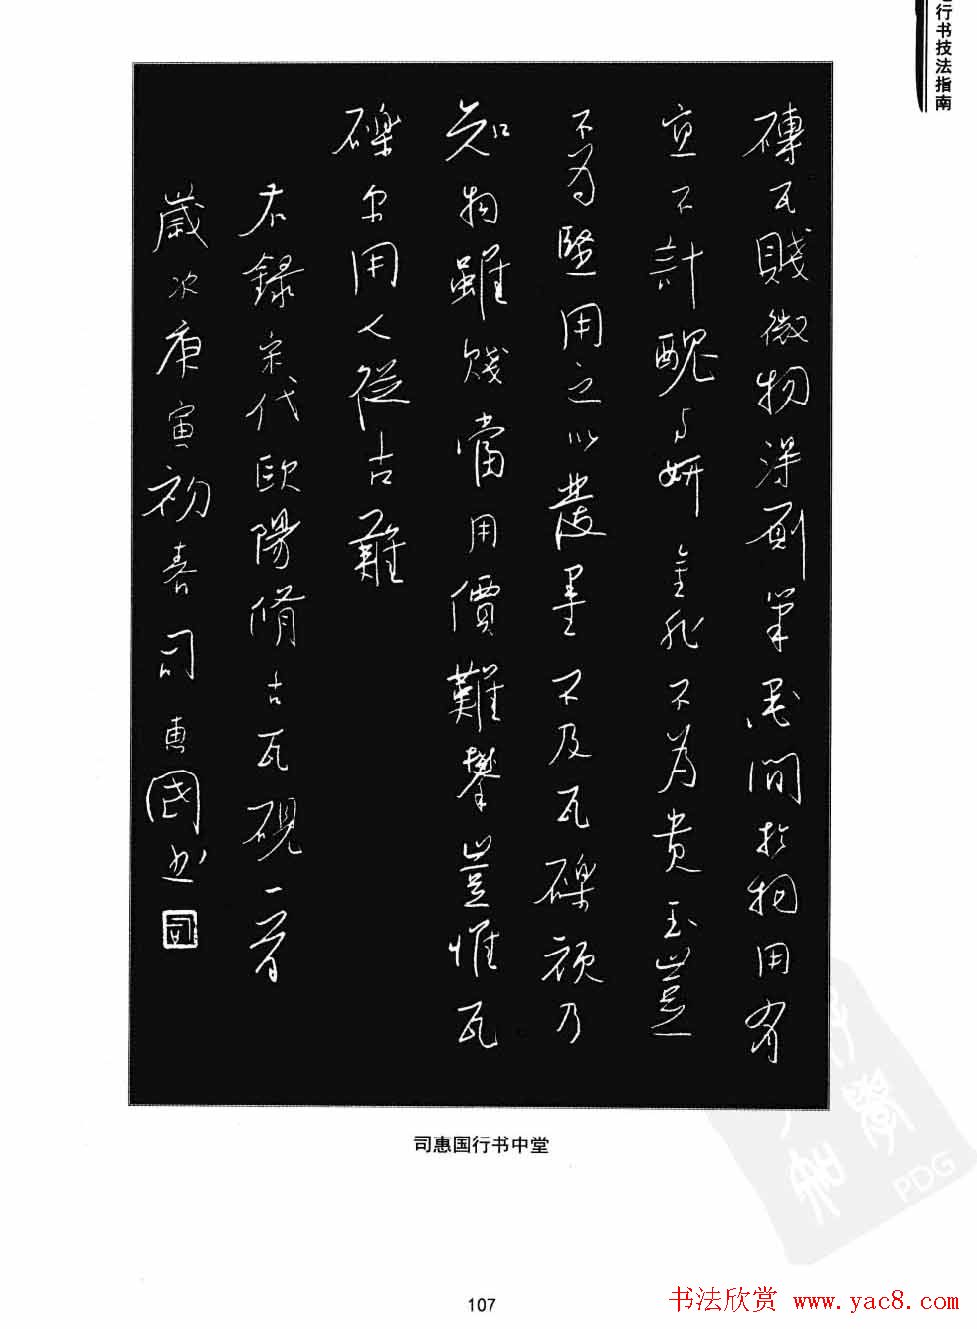 行书技法指南
磚瓦賤微物淂厠筆墨間於物用有
宜不計醜与妍金非不為貴玉豈
不為堅用之以發墨不及瓦礫頑乃
知物雖賤當用價難攀豈惟瓦
礫尔用人從古難
右録宋代歐陽脩古瓦硯一首
歲次庚寅初春司惠國书
司
司惠国行书中堂
PDG
107
书法欣赏 www.yac8.com